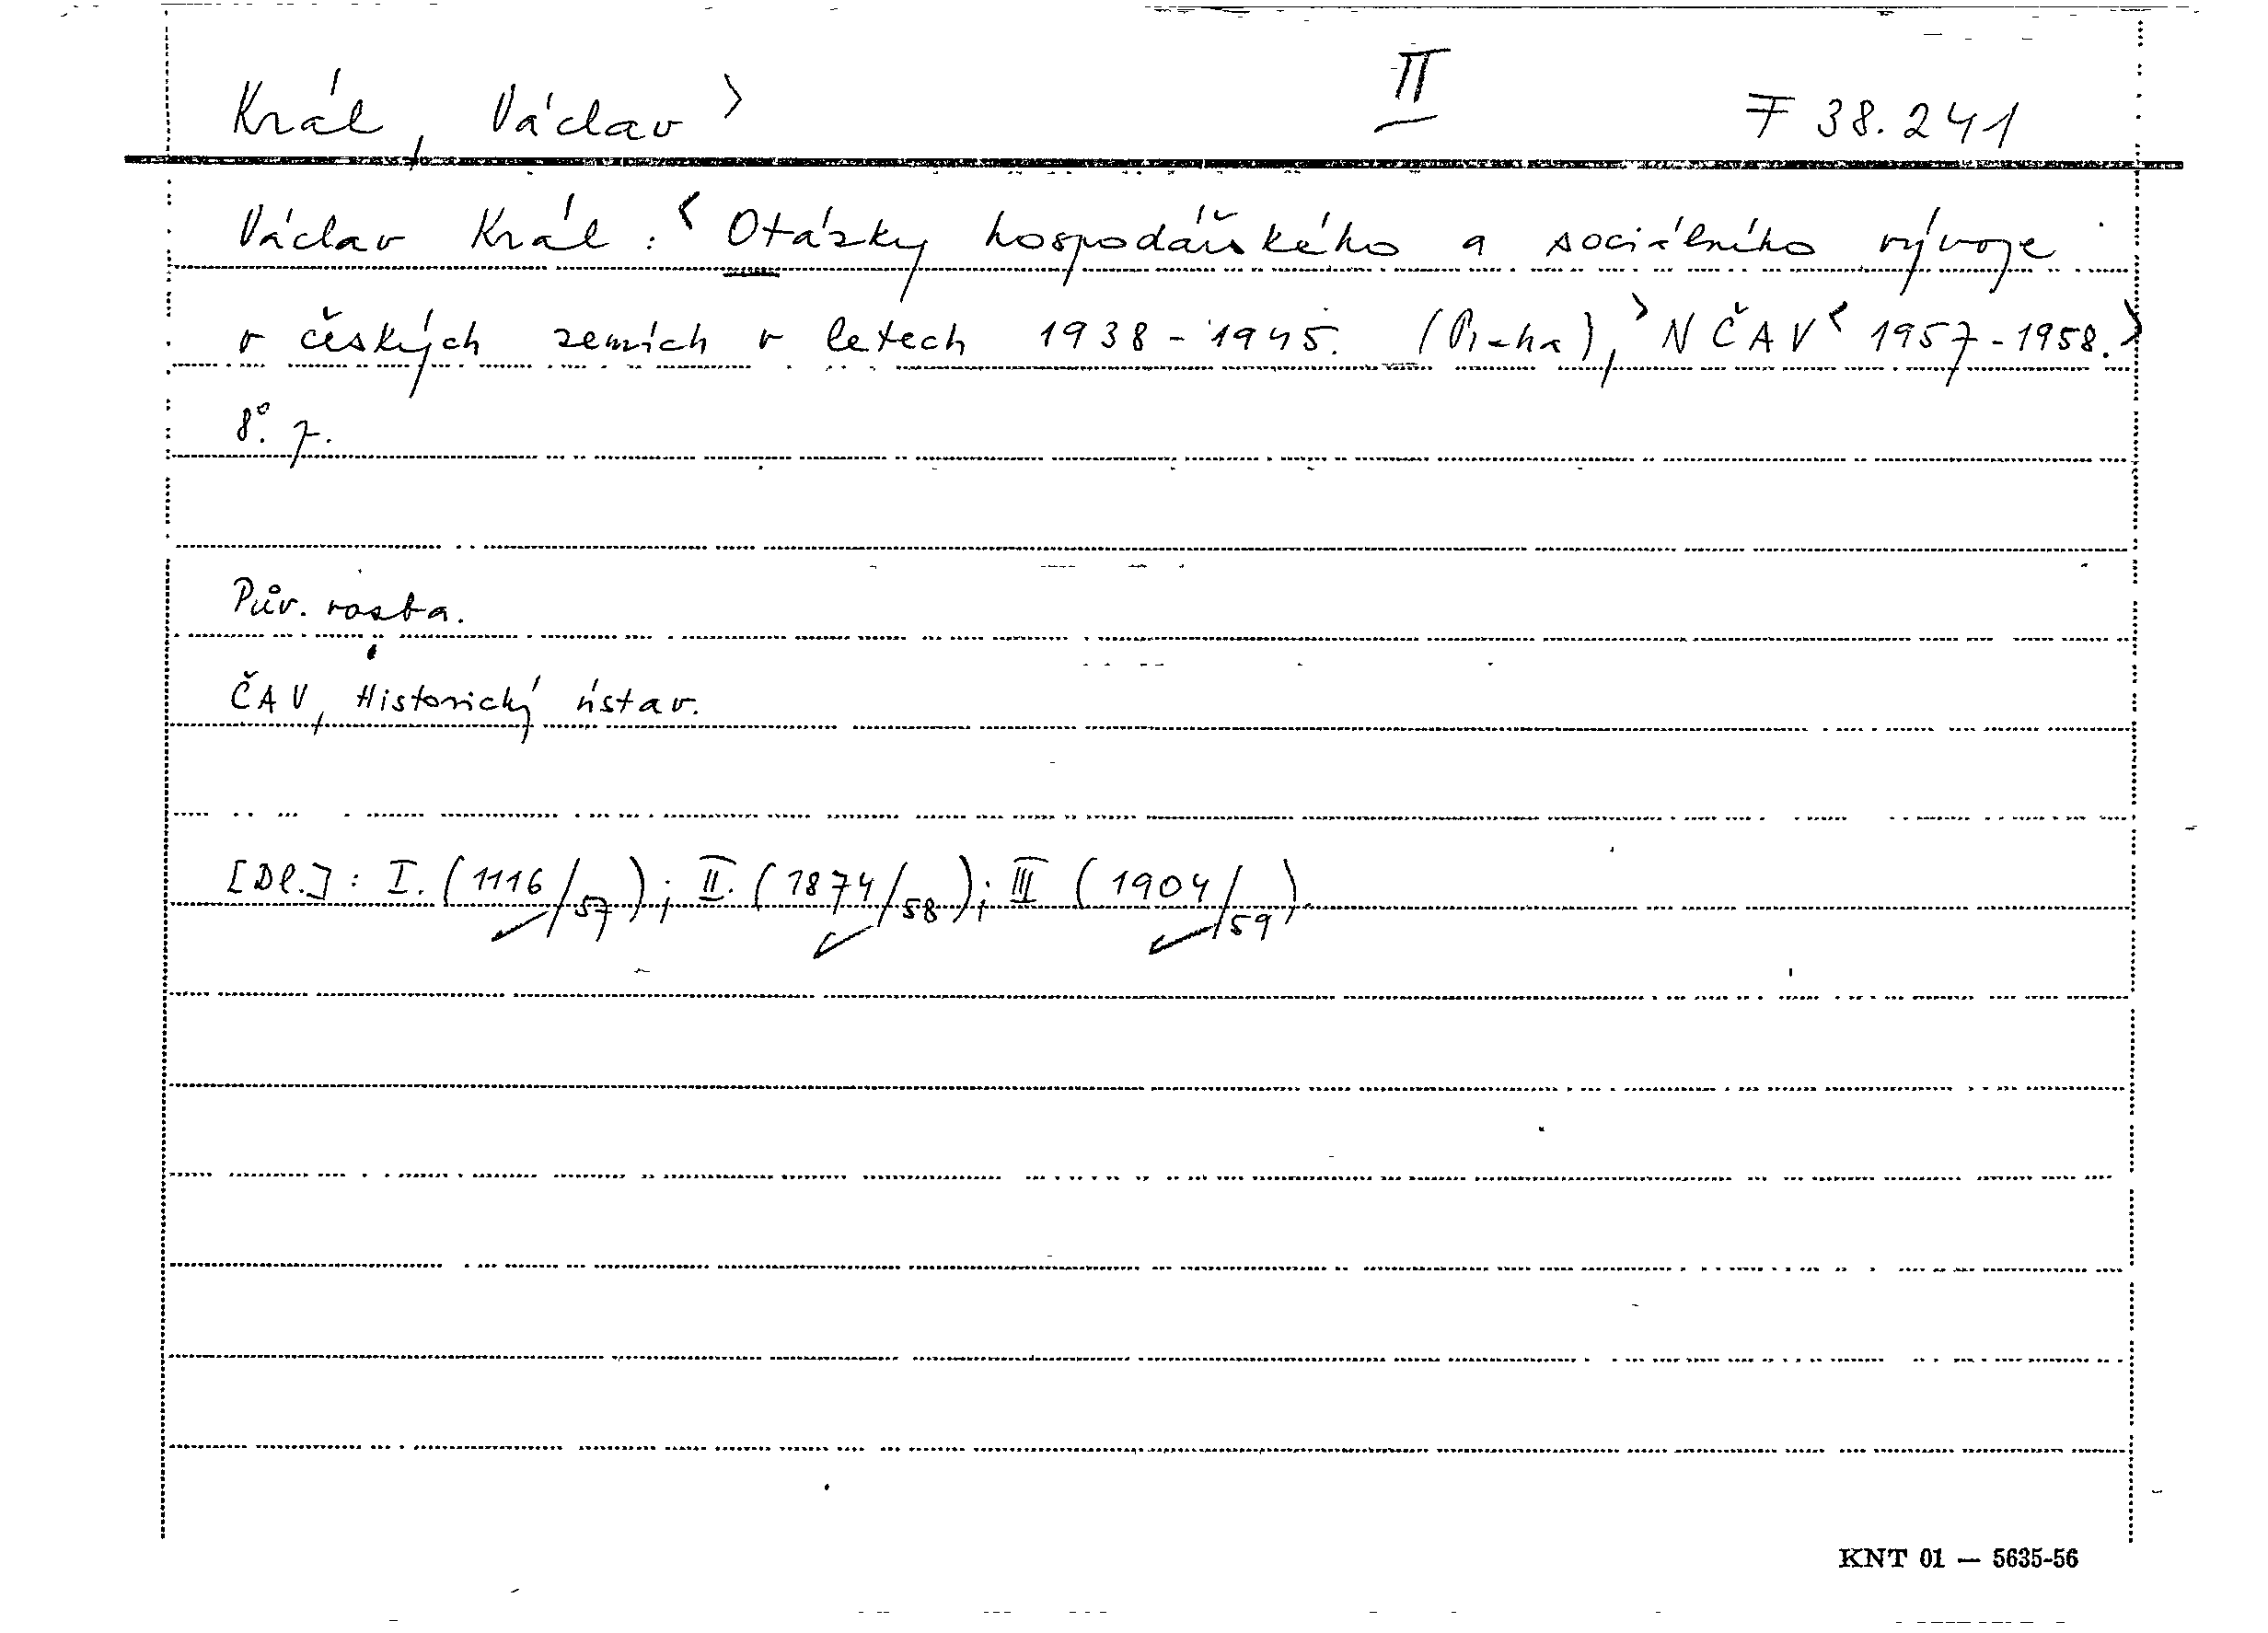 Král, Václav > II F 38.241
Václav Král: < Otázky hospodářského a sociálního vývoje
v českých zemích v letech 1938-1945. (Praha), > NČAV < 1957-1958. >
8°. 7.
Pův. vazba.
ČAV, Historický ústav.
[Dl.]: I. (1116/57); II. (1874/58); III (1904/59).
KNT 01 — 5635-56